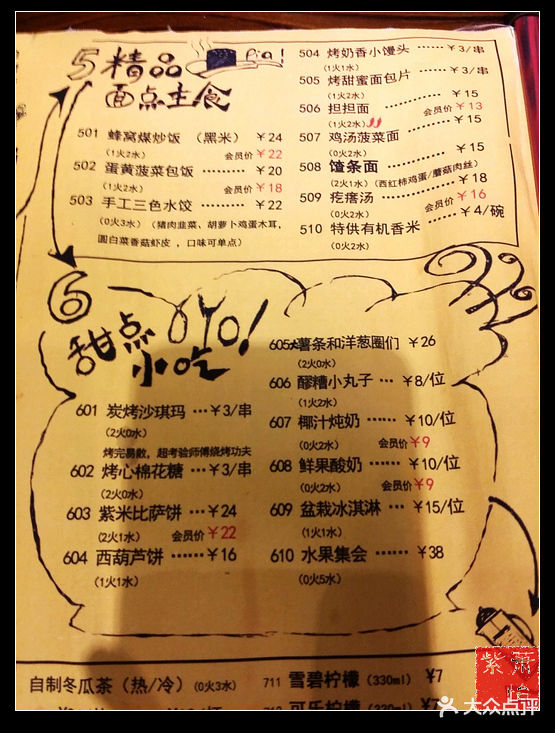 5 精品 Pia!
面点主食
501 蜂窝煤炒饭 (黑米) ￥24
(1火2水) 会员价￥22
502 蛋黄菠菜包饭 ······ ￥20
(1火2水) 会员价￥18
503 手工三色水饺 ······ ￥22
(0火3水) (猪肉韭菜、胡萝卜鸡蛋木耳、
圆白菜香菇虾皮，口味可单点)
504 烤奶香小馒头 ······ ￥3/串
(1火1水)
505 烤甜蜜面包片 ······ ￥3/串
(1火2水)
506 担担面 ······ ￥15
(1火2水) 会员价￥13
507 鸡汤菠菜面 ······ ￥15
(0火2水)
508 馇条面 ······ ￥15
(2火1水) (西红柿鸡蛋/蘑菇肉丝)
509 疙瘩汤 ······ ￥18
(0火2水) 会员价￥16
510 特供有机香米 ······ ￥4/碗
(0火2水)
6 甜点 OYO!
小吃
601 炭烤沙琪玛 ··· ￥3/串
(2火0水)
烤完易散，超考验师傅烧烤功夫
602 烤心棉花糖 ··· ￥3/串
(2火0水)
603 紫米比萨饼 ··· ￥24
(2火1水) 会员价￥22
604 西葫芦饼 ······ ￥16
(1火1水)
605 薯条和洋葱圈们 ￥26
(2火0水)
606 醪糟小丸子 ··· ￥8/位
(1火2水)
607 椰汁炖奶 ······ ￥10/位
(0火2水) 会员价￥9
608 鲜果酸奶 ······ ￥10/位
(0火2水) 会员价￥9
609 盆栽冰淇淋 ··· ￥15/位
(1火1水)
610 水果集会 ······ ￥38
(0火5水)
自制冬瓜茶 (热/冷) (0火3水)
711 雪碧柠檬 (330ml) ￥7
可乐柠檬 (330ml) ￥7
大众点评